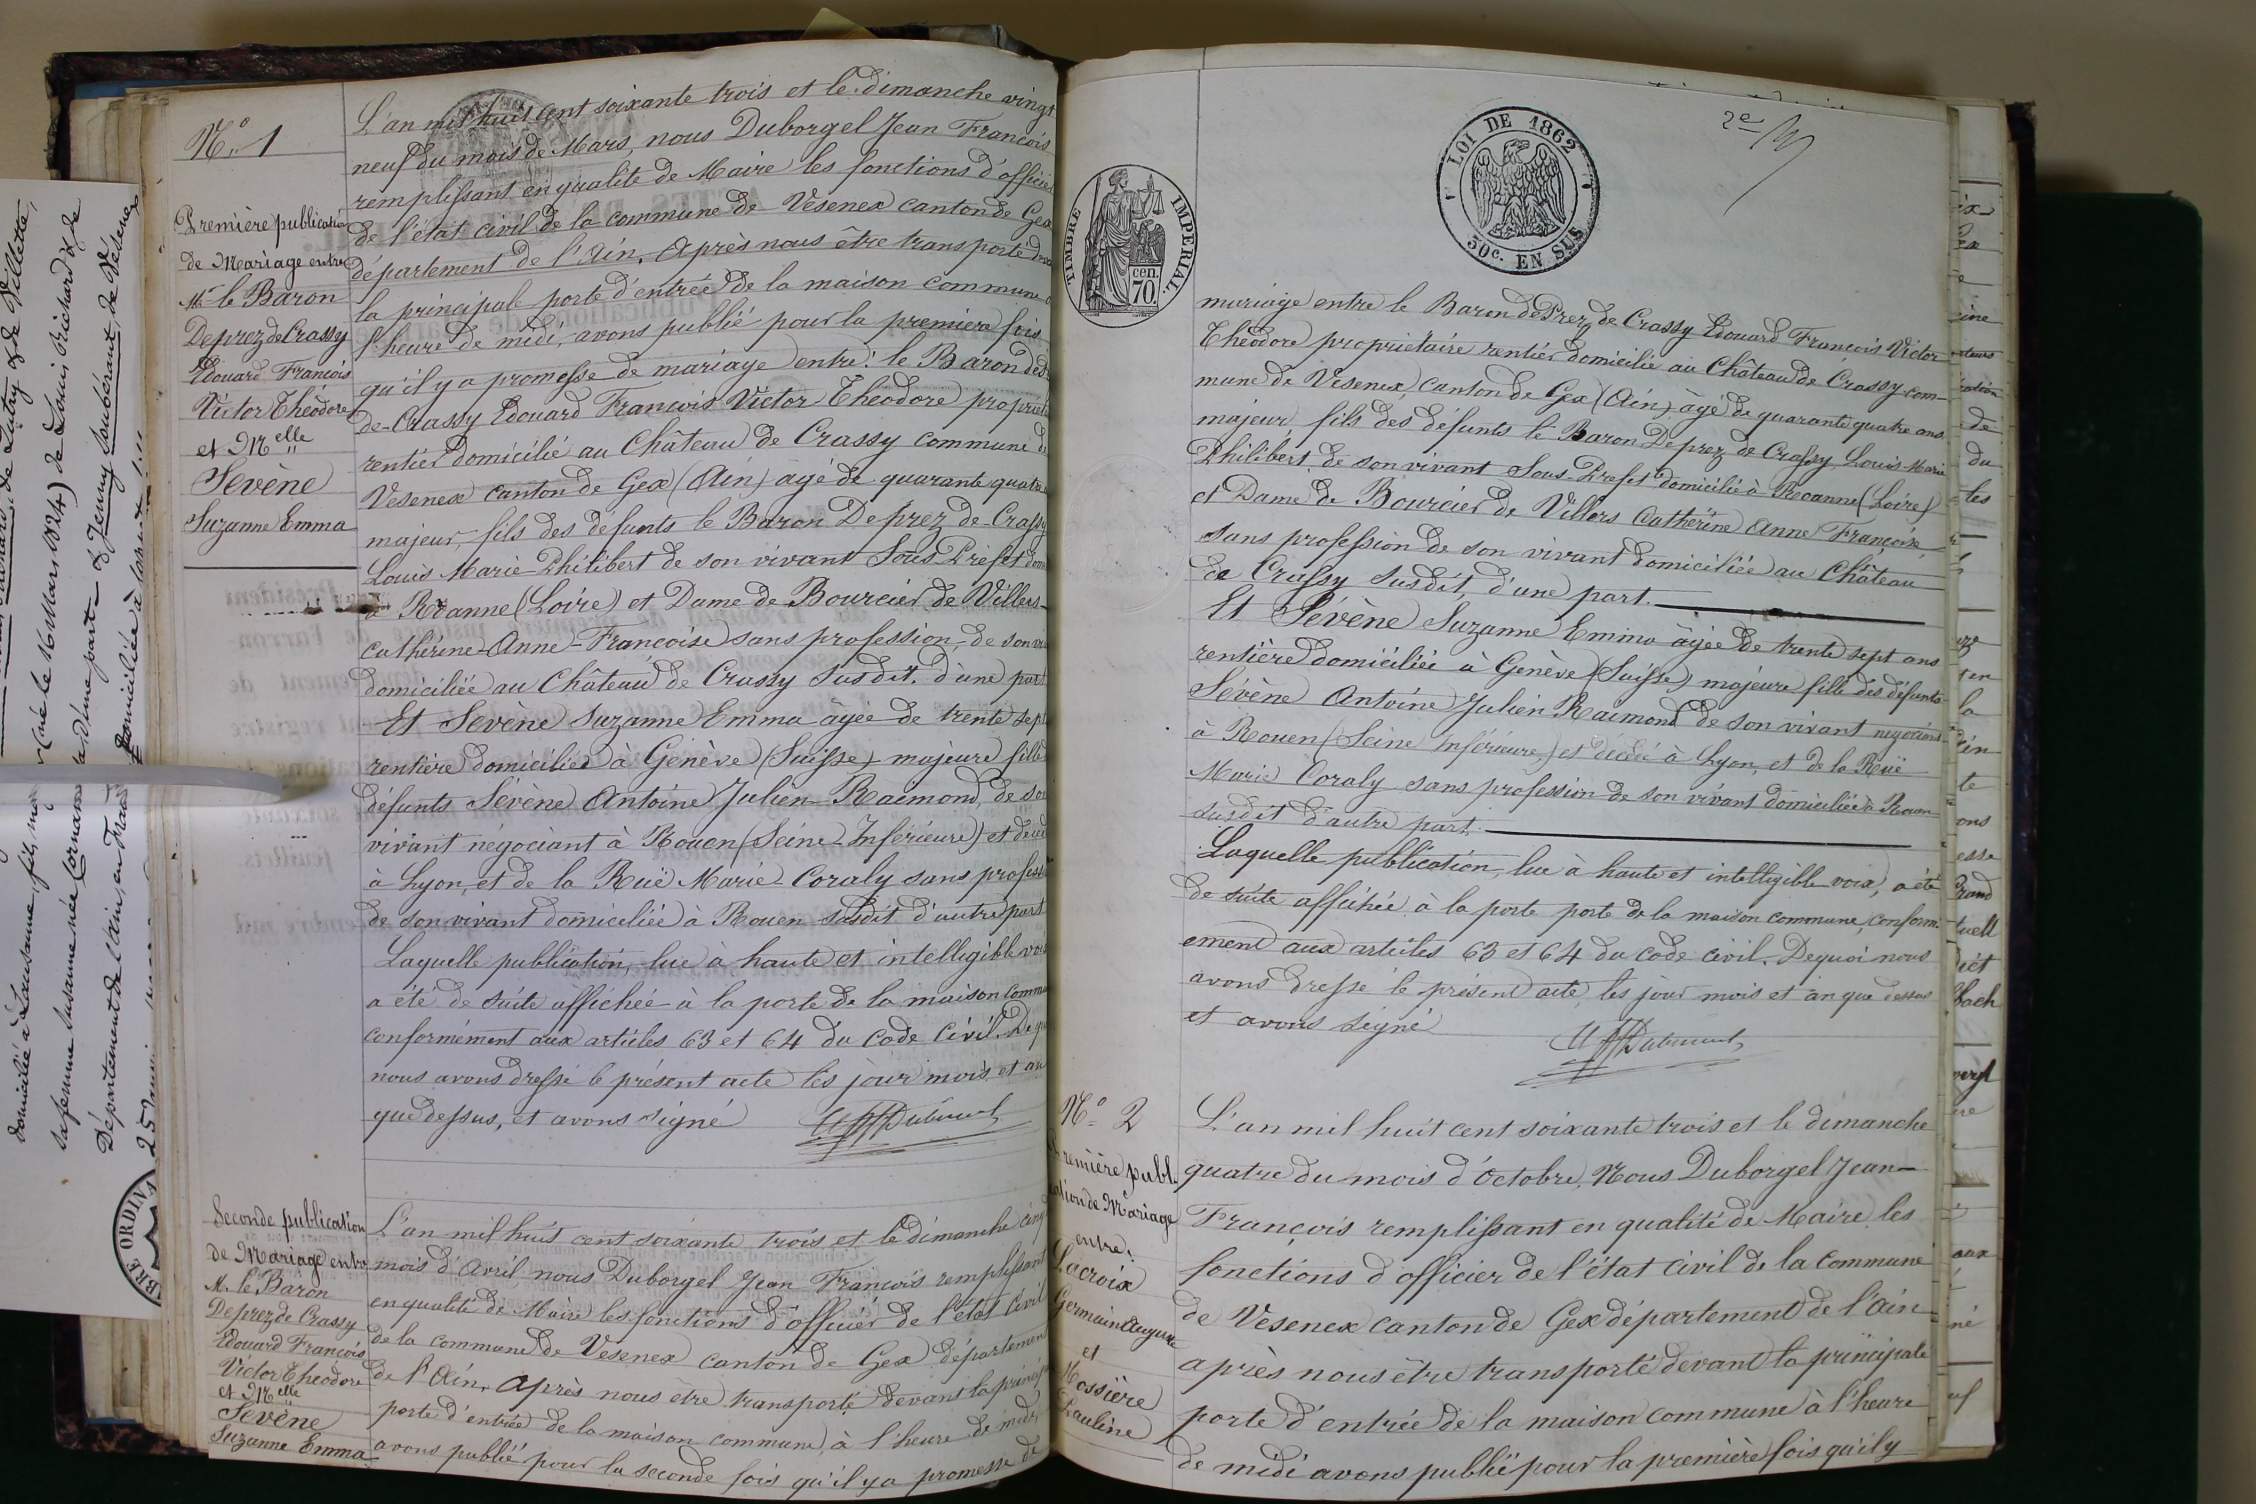 N.º 1
Première publication
de Mariage entre
Mr le Baron
Deprez de Crassy
Edouard François
Victor Théodore
et Melle
Sevène
Suzanne Emma
L'an mil huit cent soixante trois et le dimanche vingt
neuf du mois de Mars, nous Duborgel Jean François
remplissant en qualité de Maire les fonctions d'officier
de l'état civil de la commune de Vesenex canton de Gex
département de l'Ain. Après nous être transporté
la principale porte d'entrée de la maison commune
l'heure de midi, avons publié pour la première fois
qu'il y a promesse de mariage entre: le Baron
de Crassy Edouard François Victor Théodore
rentier domicilié au Château de Crassy commune de
Vesenex canton de Gex (Ain) âgé de quarante quatre
majeur, fils des défunts le Baron Deprez de Crassy
Louis Marie Philibert de son vivant Sous-Préfet
à Roanne (Loire) et Dame de Bourcier de Villers
Cathérine-Anne-Françoise sans profession, de son
domiciliée au Château de Crassy susdit. d'une part
Et Sevène Suzanne Emma âgée de trente sept
rentière domiciliée à Genève (Suisse) majeure fille
défunts Sévène Antoine Julien Raimond, de son
vivant négociant à Rouen (Seine-Inférieure) et
à Lyon, et de la Ruë Marie-Coraly sans
de son vivant domiciliée à Rouen susdit d'autre part
Laquelle publication, lue à haute et intelligible
a été de suite affichée à la porte de la maison
conformément aux articles 63 et 64 du Code Civil.
nous avons dressé le présent acte les jour mois et an
que dessus, et avons signé
Seconde publication
de Mariage entre
M. le Baron
Deprez de Crassy
Edouard François
Victor Théodore
et Melle
Sevène
Suzanne Emma
L'an mil huit cent soixante trois et le dimanche cinq
mois d'avril nous Duborgel Jean François remplissant
en qualité de Maire les fonctions d'officier de l'état civil
de la commune de Vesenex canton de Gex département
de l'Ain. Après nous être transporté devant la
porte d'entrée de la maison commune, à l'heure de midi,
avons publié pour la seconde fois qu'il y a promesse de
domicilié à Lausanne, fils
(né le 16 Mars 1824) de Louis Richard & de
sa femme Susanne née d'une part et Jenny Soubérant, de Vésenex
Département de l'Ain, en
TIMBRE IMPERIAL.
cen. 70.
LOI DE 1862
50c. EN SUS
2e
mariage entre le Baron de Prez de Crassy Edouard François Victor
Théodore propriétaire rentier domicilié au Château de Crassy com-
mune de Vesenex, canton de Gex (Ain) âgé de quarante quatre ans
majeur, fils des défunts le Baron Deprez de Crassy Louis-Marie
Philibert, de son vivant Sous-Préfet domicilié à Roanne (Loire)
et Dame de Bourcier de Villers Cathérine Anne Françoise
sans profession de son vivant domiciliée au Château
de Crassy susdit, d'une part.
Et Sévène Suzanne Emma âgée de trente sept ans
rentière domiciliée à Genève (Suisse) majeure fille des défunts
Sévène Antoine Julien Raimond de son vivant négociant
à Rouen (Seine Inférieure,) et décédé à Lyon, et de la Ruë
Marie Coraly sans profession de son vivant domiciliée à Rouen
susdit d'autre part.
Laquelle publication, lue à haute et intelligible voix, a été
de suite affichée à la porte porte de la maison commune, conform-
ement aux articles 63 et 64 du Code Civil. De quoi nous
avons dressé le présent acte, les jour mois et an que dessus
et avons signé
Nº 2
Première publi-
cation de Mariage
entre:
Lacroix
Germain
et
Mossière
Pauline
L'an mil huit cent soixante trois et le dimanche
quatre du mois d'Octobre, Nous Duborgel Jean-
François remplissant en qualité de Maire les
fonctions d'officier de l'état civil de la commune
de Vesenex canton de Gex département de l'Ain
après nous être transporté devant la principale
porte d'entrée de la maison commune à l'heure
de midi avons publié pour la première fois qu'il y